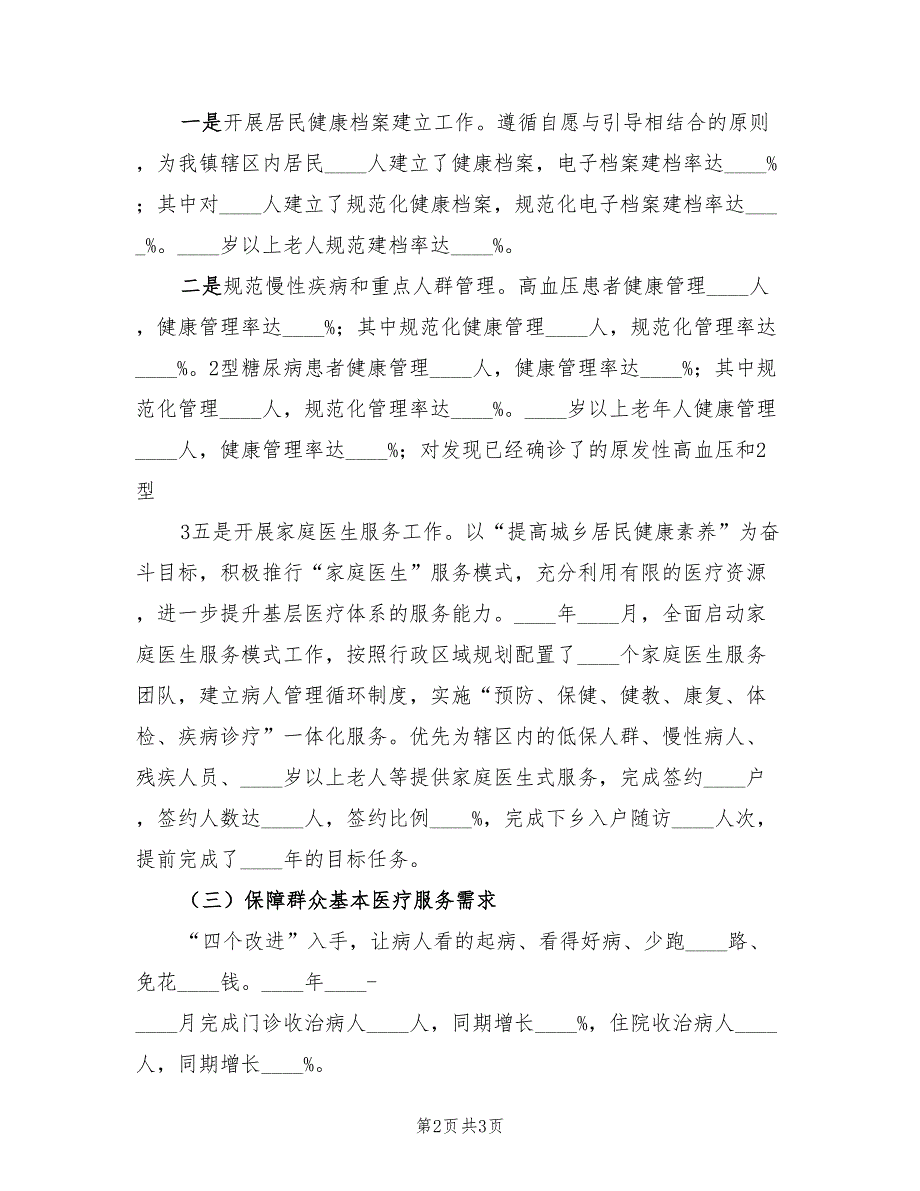 一是开展居民健康档案建立工作。遵循自愿与引导相结合的原则
，为我镇辖区内居民____人建立了健康档案，电子档案建档率达____%
；其中对____人建立了规范化健康档案，规范化电子档案建档率达___
_%。____岁以上老人规范建档率达____%。
二是规范慢性疾病和重点人群管理。高血压患者健康管理____人
，健康管理率达____%；其中规范化健康管理____人，规范化管理率达
____%。2型糖尿病患者健康管理____人，健康管理率达____%；其中规
范化管理____人，规范化管理率达____%。____岁以上老年人健康管理
____人，健康管理率达____%；对发现已经确诊了的原发性高血压和2
型
3五是开展家庭医生服务工作。以“提高城乡居民健康素养”为奋
斗目标，积极推行“家庭医生”服务模式，充分利用有限的医疗资源
，进一步提升基层医疗体系的服务能力。____年____月，全面启动家
庭医生服务模式工作，按照行政区域规划配置了____个家庭医生服务
团队，建立病人管理循环制度，实施“预防、保健、健教、康复、体
检、疾病诊疗”一体化服务。优先为辖区内的低保人群、慢性病人、
残疾人员、____岁以上老人等提供家庭医生式服务，完成签约____户
，签约人数达____人，签约比例____%，完成下乡入户随访____人次，
提前完成了____年的目标任务。
（三）保障群众基本医疗服务需求
“四个改进”入手，让病人看的起病、看得好病、少跑____路、
免花____钱。____年____-
____月完成门诊收治病人____人，同期增长____%，住院收治病人____
人，同期增长____%。
第2页共3页